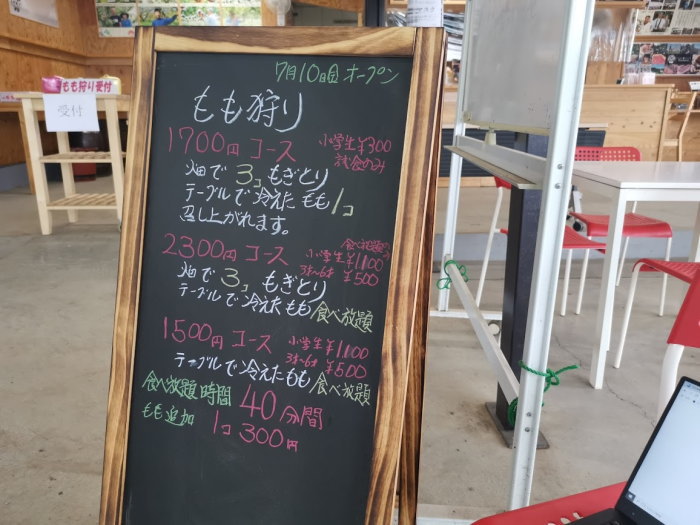 もも狩り受付
受付
7月10日(金)オープン
もも狩り
1700円 コース 小学生¥300
試食のみ
畑で3コもぎとり
テーブルで冷えたもも1コ
召し上がれます。
2300円 コース
食べ放題の
小学生¥1100
3才〜6才 ¥500
畑で3コもぎとり
テーブルで冷えたもも食べ放題
1500円 コース 小学生¥1100
3才〜6才 ¥500
テーブルで冷えたもも食べ放題
食べ放題時間 40分間
もも追加 1コ300円